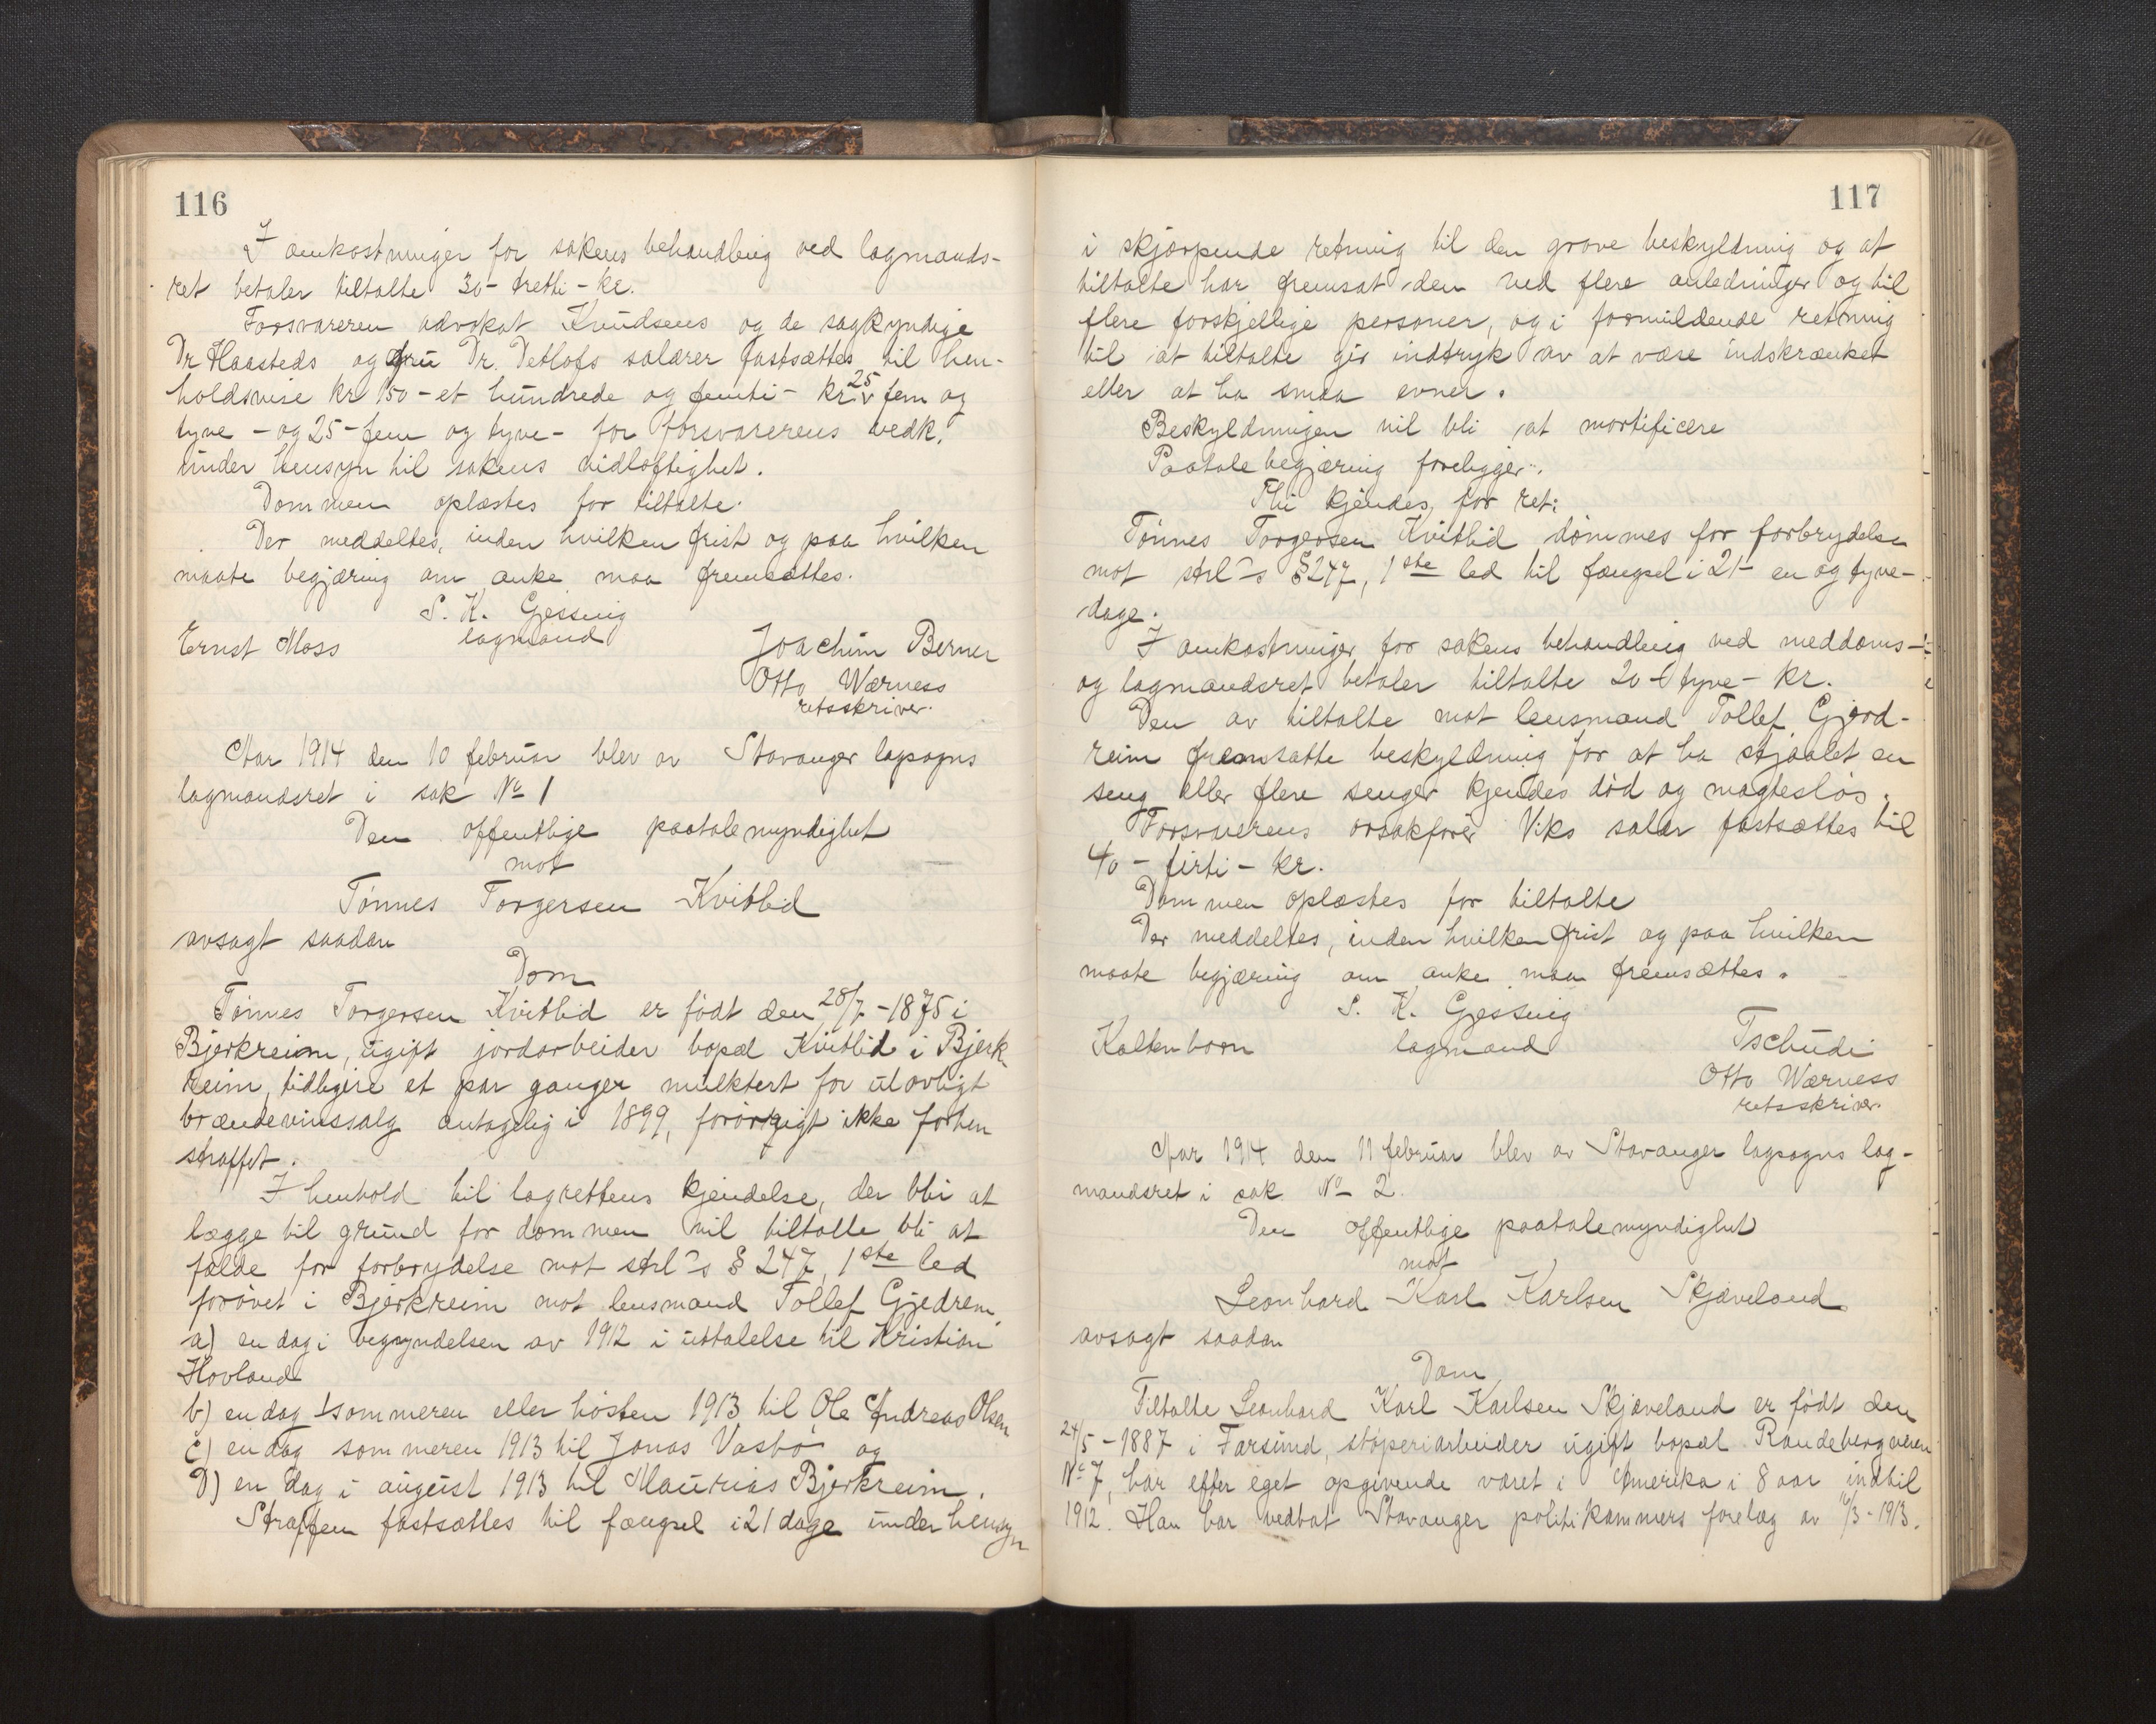 116
I omkostninger for sakens behandling ved lagmands-
ret betaler tiltalte 30 - tretti - kr.
Forsvareren advokat Knudsens og de sagkyndige
Dr Haasteds og fru Dr. Detlofs salærer fastsættes til hen-
holdsvise kr 150 - et hundrede og femti - kr. 25 fem og
tyve - og 25 - fem og tyve - for forsvarerens vedk.
under hensyn til sakens vidløftighet.
Dommen oplæstes for tiltalte.
Der meddeltes, inden hvilken frist og paa hvilken
maate begjæring om anke maa fremsættes.
S. K. Gjessing
lagmand
Ernst Moss
Joachim Berner
Otto Wærness
retsskriver.
Aar 1914 den 10 februar blev av Stavanger lagsogns
lagmandsret i sak No 1
Den offentlige paatalemyndighet
mot
Tønnes Torgersen Kvitlid
avsagt saadan
Dom
Tønnes Torgersen Kvitlid er født den 28/7 - 1875 i
Bjerkreim, ugift jordarbeider bopæl Kvitlid i Bjerk
reim, tidligere et par ganger mulktert for ulovligt
brændevinssalg antagelig i 1899, forøvrigt ikke forhen
straffet.
I henhold til lagrettens kjendelse, der blir at
lægge til grund for dommen vil tiltalte bli at
fælde for forbrydelse mot strl's § 247, 1ste led
forøvet i Bjerkreim mot lensmand Tollef Gjedrem
a) en dag i begyndelsen av 1912 i uttalelse til Kristian
Hovland
b) en dag sommeren eller høsten 1913 til Ole Andreas Olsen
c) en dag sommeren 1913 til Jonas Vasbø og
D) en dag i august 1913 til Maurias Bjerkreim.
Straffen fastsættes til fængsel i 21 dage under hensyn
117
i skjærpende retning til den grove beskyldning og at
tiltalte har fremsat den ved flere anledninger og til
flere forskjellige personer, og i formildende retning
til at tiltalte gir indtryk av at være indskrænket
eller at ha smaa evner.
Beskyldningen vil bli at mortificere
Paatalebegjæring foreligger.
Thi kjendes for ret:
Tønnes Torgersen Kvitlid dømmes for forbrydelse
mot strl's § 247, 1ste led til fængsel i 21 - en og tyve -
dage.
I omkostninger for sakens behandling ved meddoms-
og lagmandsret betaler tiltalte 20 - tyve - kr.
Den av tiltalte mot lensmand Tollef Gjed-
reim fremsatte beskyldning for at ha stjaalet en
seng eller flere senger kjendes død og magtesløs.
Forsvarerens orsakfører Viks salær fastsættes til
40 - firti - kr.
Dommen oplæstes for tiltalte
Der meddeltes, inden hvilken frist og paa hvilken
maate begjæring om anke maa fremsættes.
S. K. Gjessing
Kaltenborn lagmand Tschudi
Otto Wærness
retsskriver.
Aar 1914 den 11 februar blev av Stavanger lagsogns lag-
mandsret i sak No 2.
Den offentlige paatalemyndighet
mot
Leonhard Karl Karlsen Skjæveland
avsagt saadan
Dom
Tiltalte Leonhard Karl Karlsen Skjæveland er født den
24/5 - 1887 i Farsund, støperiarbeider ugift bopæl Randebergveien
No 7, har efter eget opgivende været i Amerika i 8 aar indtil
1912. Han har vedtat Stavanger politikammers forelæg av /3 - 1913.